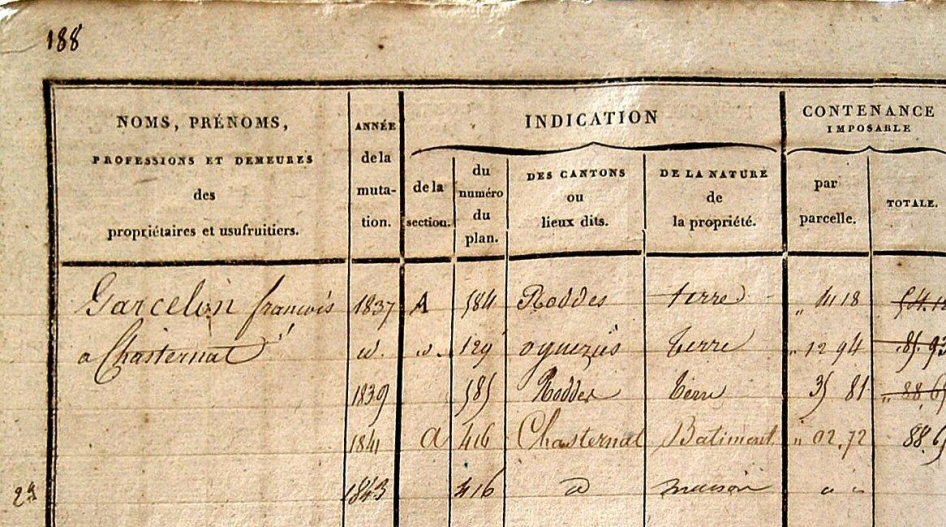 188
NOMS, PRÉNOMS,
PROFESSIONS ET DEMEURES
des
propriétaires et usufruitiers.
ANNÉE
de la
muta-
tion.
INDICATION
de la
section.
du
numéro
du
plan.
DES CANTONS
ou
lieux dits.
DE LA NATURE
de
la propriété.
CONTENANCE
IMPOSABLE
par
parcelle.
TOTALE.
Garcelin francois 1837 A 584 Roddes terre 18
a Chasternat id. id. 129 terre " 12 94
1839 585 Roddes terre 35 81 " 88.6
1841 a 416 Chasternat Batiment " 02.72 88.6
1843 416 id maison " "